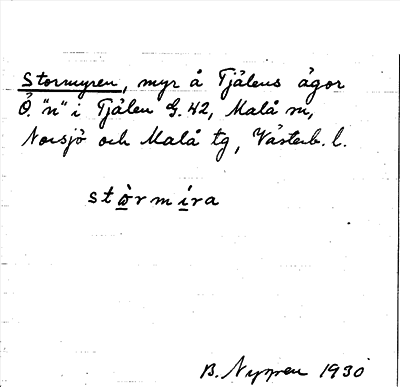 Stormyren, myr å Tjålens ägor
Ö. "n" i Tjålen G. 42, Malå sn,
Norsjö och Malå tg, Västerb. l.
stòrmíra
B. Nygren 1930